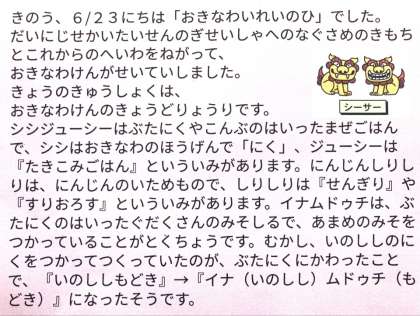 きのう、６/２３にちは「おきなわいれいのひ」でした。
だいにじせかいたいせんのぎせいしゃへのなぐさめのきもち
とこれからのへいわをねがって、
おきなわけんがせいていしました。
きょうのきゅうしょくは、
おきなわけんのきょうどりょうりです。
シーサー
シシジューシーはぶたにくやこんぶのはいったまぜごはん
で、シシはおきなわのほうげんで「にく」、ジューシーは
『たきこみごはん』といういみがあります。にんじんしりし
りは、にんじんのいためもので、しりしりは『せんぎり』や
『すりおろす』といういみがあります。イナムドゥチは、ぶ
たにくのはいったぐだくさんのみそしるで、あまめのみそを
つかっていることがとくちょうです。むかし、いのししのに
くをつかってつくっていたのが、ぶたにくにかわったこと
で、『いのししもどき』→『イナ（いのしし）ムドゥチ（も
どき）』になったそうです。